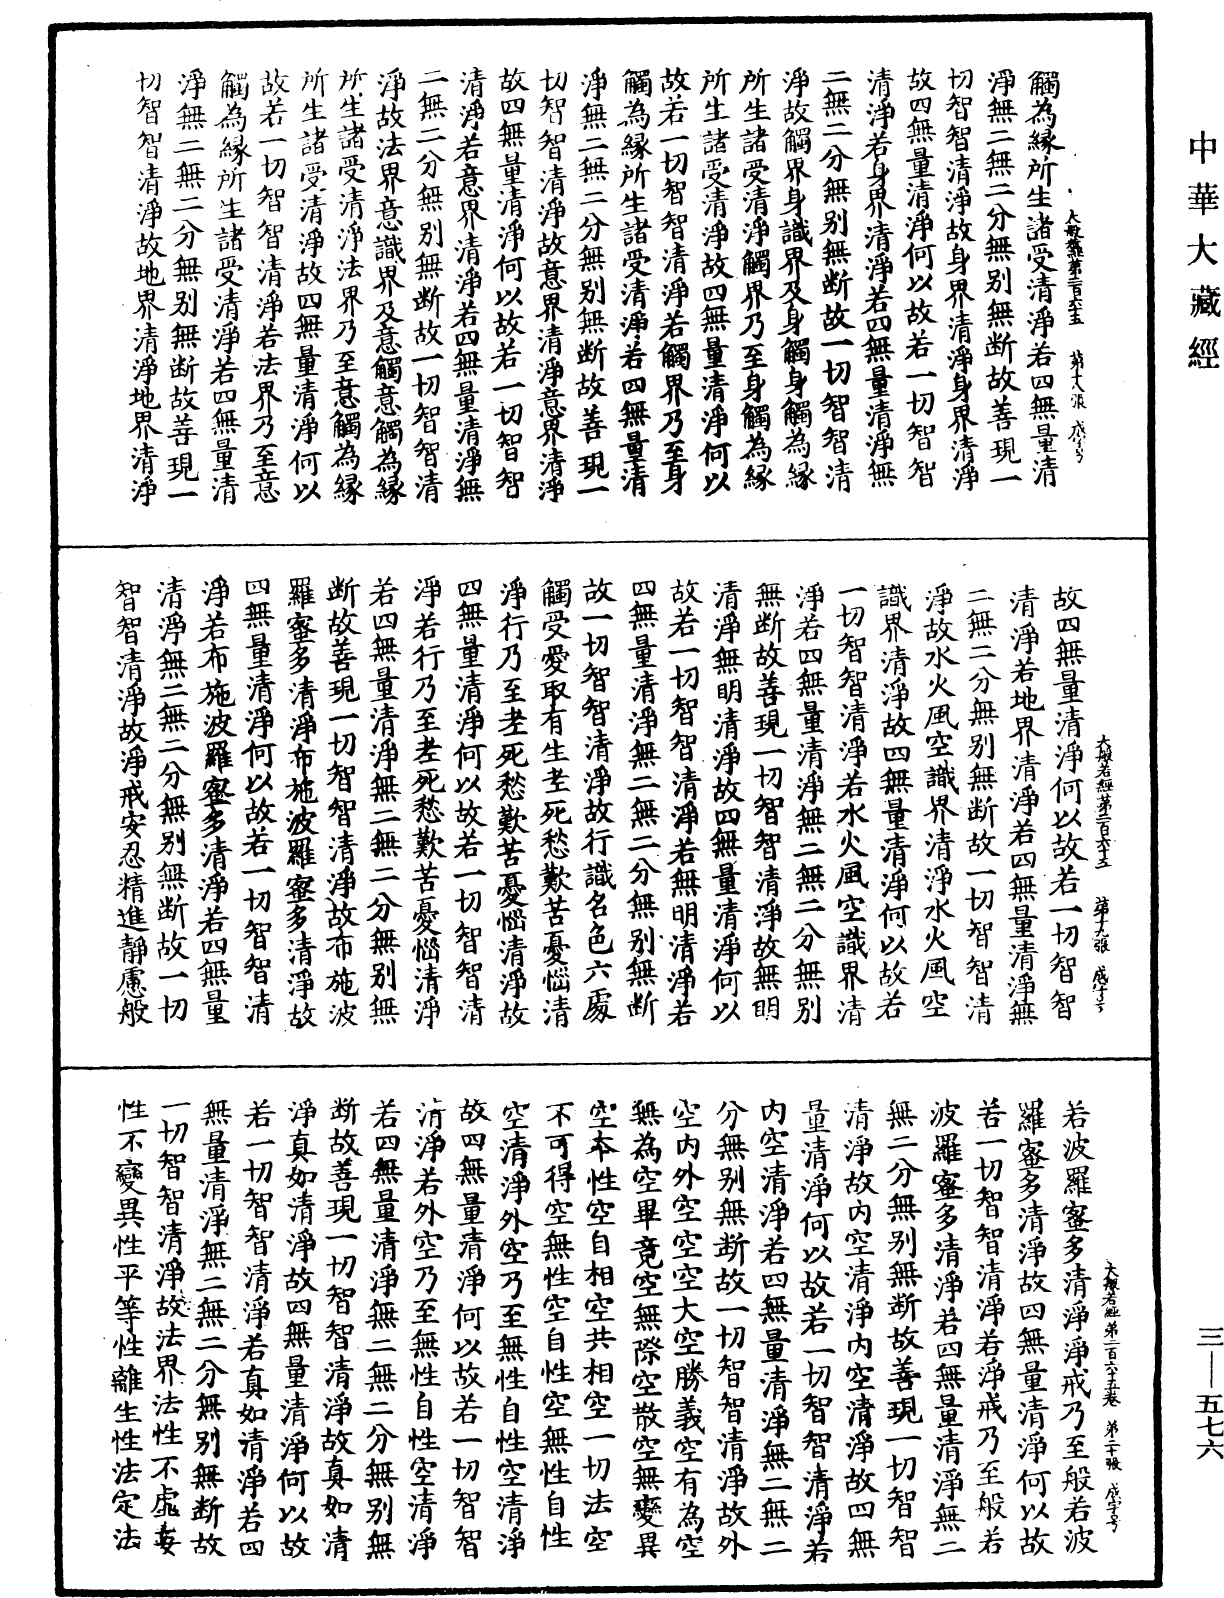 中華大藏經
觸為緣所生諸受清淨若四無量清
淨無二無二分無別無斷故善現一
切智智清淨故身界清淨身界清淨
故四無量清淨何以故若一切智智
清淨若身界清淨若四無量清淨無
二無二分無別無斷故一切智智清
淨故觸界身識界及身觸身觸為緣
所生諸受清淨觸界乃至身觸為緣
所生諸受清淨故四無量清淨何以
故若一切智智清淨若觸界乃至身
觸為緣所生諸受清淨若四無量清
淨無二無二分無別無斷故善現一
切智智清淨故意界清淨意界清淨
故四無量清淨何以故若一切智智
清淨若意界清淨若四無量清淨無
二無二分無別無斷故一切智智清
淨故法界意識界及意觸意觸為緣
所生諸受清淨法界乃至意觸為緣
所生諸受清淨故四無量清淨何以
故若一切智智清淨若法界乃至意
觸為緣所生諸受清淨若四無量清
淨無二無二分無別無斷故善現一
切智智清淨故地界清淨地界清淨
大般若經第二百六十五 第十八張 成字号
故四無量清淨何以故若一切智智
清淨若地界清淨若四無量清淨無
二無二分無別無斷故一切智智清
淨故水火風空識界清淨水火風空
識界清淨故四無量清淨何以故若
一切智智清淨若水火風空識界清
淨若四無量清淨無二無二分無別
無斷故善現一切智智清淨故無明
清淨無明清淨故四無量清淨何以
故若一切智智清淨若無明清淨若
四無量清淨無二無二分無別無斷
故一切智智清淨故行識名色六處
觸受愛取有生老死愁歎苦憂惱清
淨行乃至老死愁歎苦憂惱清淨故
四無量清淨何以故若一切智智清
淨若行乃至老死愁歎苦憂惱清淨
若四無量清淨無二無二分無別無
斷故善現一切智智清淨故布施波
羅蜜多清淨布施波羅蜜多清淨故
四無量清淨何以故若一切智智清
淨若布施波羅蜜多清淨若四無量
清淨無二無二分無別無斷故一切
智智清淨故淨戒安忍精進靜慮般
大般若經第二百六十五 第十九張 成字号
若波羅蜜多清淨淨戒乃至般若波
羅蜜多清淨故四無量清淨何以故
若一切智智清淨若淨戒乃至般若
波羅蜜多清淨若四無量清淨無二
無二分無別無斷故善現一切智智
清淨故內空清淨內空清淨故四無
量清淨何以故若一切智智清淨若
內空清淨若四無量清淨無二無二
分無別無斷故一切智智清淨故外
空內外空空空大空勝義空有為空
無為空畢竟空無際空散空無變異
空本性空自相空共相空一切法空
不可得空無性空自性空無性自性
空清淨外空乃至無性自性空清淨
故四無量清淨何以故若一切智智
清淨若外空乃至無性自性空清淨
若四無量清淨無二無二分無別無
斷故善現一切智智清淨故真如清
淨真如清淨故四無量清淨何以故
若一切智智清淨若真如清淨若四
無量清淨無二無二分無別無斷故
一切智智清淨故法界法性不虛妄
性不變異性平等性離生性法定法
大般若經第二百六十五卷 第二十張 成字号
三—五七六